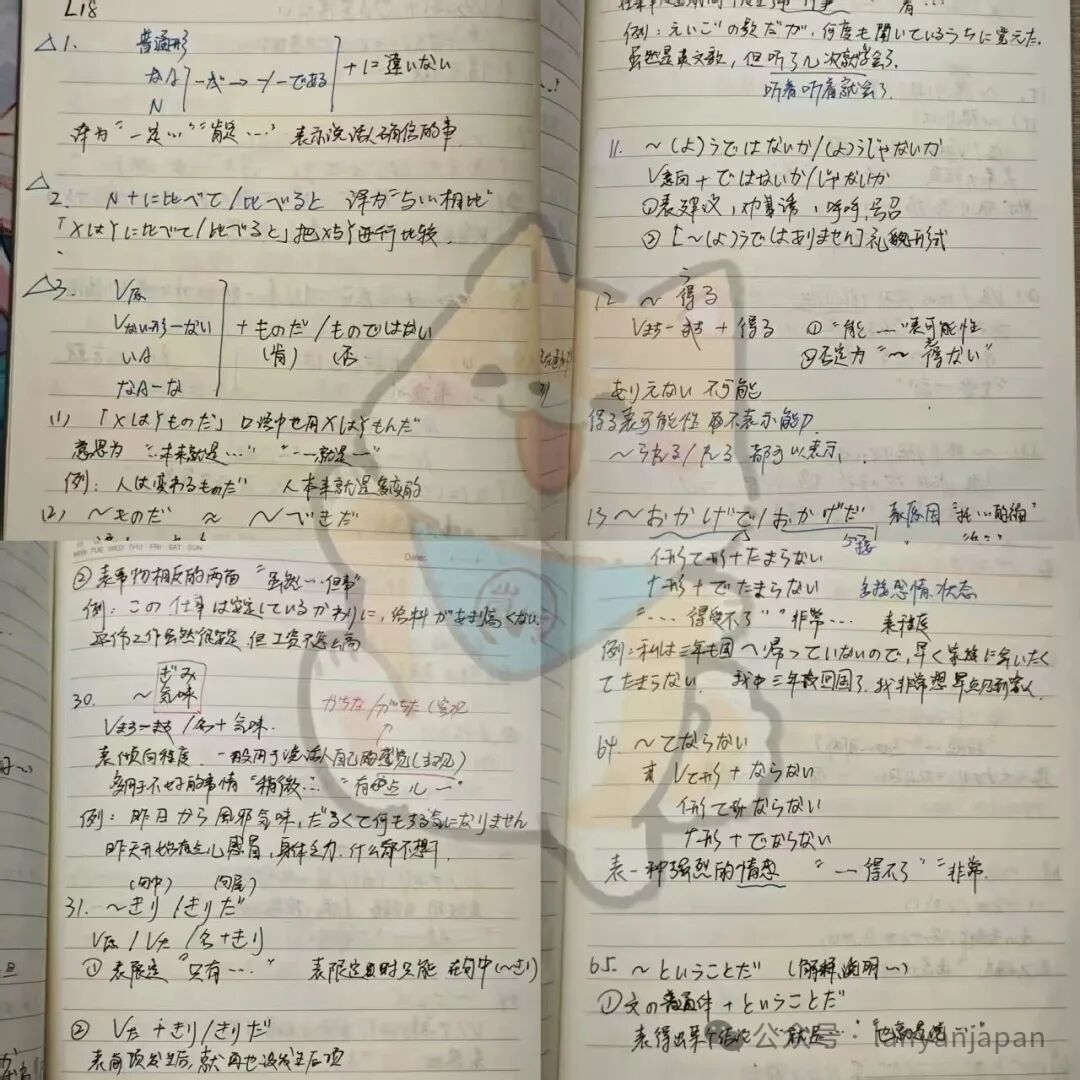 L18
△1. 普通形
なA
N
-だ → -/-である
+に違いない
译为"一定…""肯定…" 表示说话人确信的事
△2. N+に比べて/比べると 译为"与…相比"
「XはYに比べて/比べると」把X与Y进行比较.
△3. V原
Vない形-ない
いA
なA-な
+ものだ/ものではない
(肯) (否
(1) 「XはYものだ」口语中也用XはYもんだ
意思为 "…本来就是…" "…就是…"
例: 人は変わるものだ 人本来就是多变的
(2) ~ものだ ≈ ~べきだ
例:えいごの歌だが,何度も聞いているうちに覚えた.
虽然是英文歌,但听了几次就学会了.
听着听着就会了.
11. ~(よ)うではないか/(よ)うじゃないか
V意向+ではないか/じゃないか
①表建议,劝诱,呼吁,号召
②【~(よ)うではありません】礼貌形式
う
12 ~ 得る
Vます-ます + 得る ①"能…"表可能性
②否定为"~得ない"
え
ありえない 不可能
得る表可能性 而不表示能力
~られる/れる 都可以表示.
13 ~おかげで/おかげだ 表原因 "托…的福"
MON TUE WED THU FRI SAT SUN
Date:
②表事物相反的两面 "虽然…但事"
例: この仕事は安定しているかわりに,給料があまり高くない.
这份工作虽然很稳定,但工资不怎么高
ぎみ
30. ~気味
がちな/がちだ (客观
Vます-ます/名+気味.
表倾向程度. 一般用于说话人自己的感觉(主观)
多用于不好的事情 "稍微…" "有些点儿…"
例: 昨日から風邪気味,だるくて何もする気になりません
昨天开始有点儿感冒,身体乏力.什么都不想干.
(句中) (句尾)
31. ~きり/きりだ
V原/Vた/名+きり
①表限定 "只有…" 表限定时只能 在句中(~きり)
② Vた+きり/きりだ
表前项发生后,就再也没发生后项
イ形て形+たまらない
ナ形+でたまらない 多接感情.状态
"…得受不了""非常… 表程度
例:私は三年も国へ帰っていないので,早く家族に会いたく
てたまらない. 我中三年没回国了.我非常想早点见到家人.
64. ~てならない
Vて形+ならない
イ形て形ならない
ナ形+でならない
表一种强烈的情感 "…得不了""非常.
65. ~ということだ (解释说明~)
①文の普通体+ということだ
表得出某个结论 "就是…" "也就是说…"
公众号·lanyanjapan